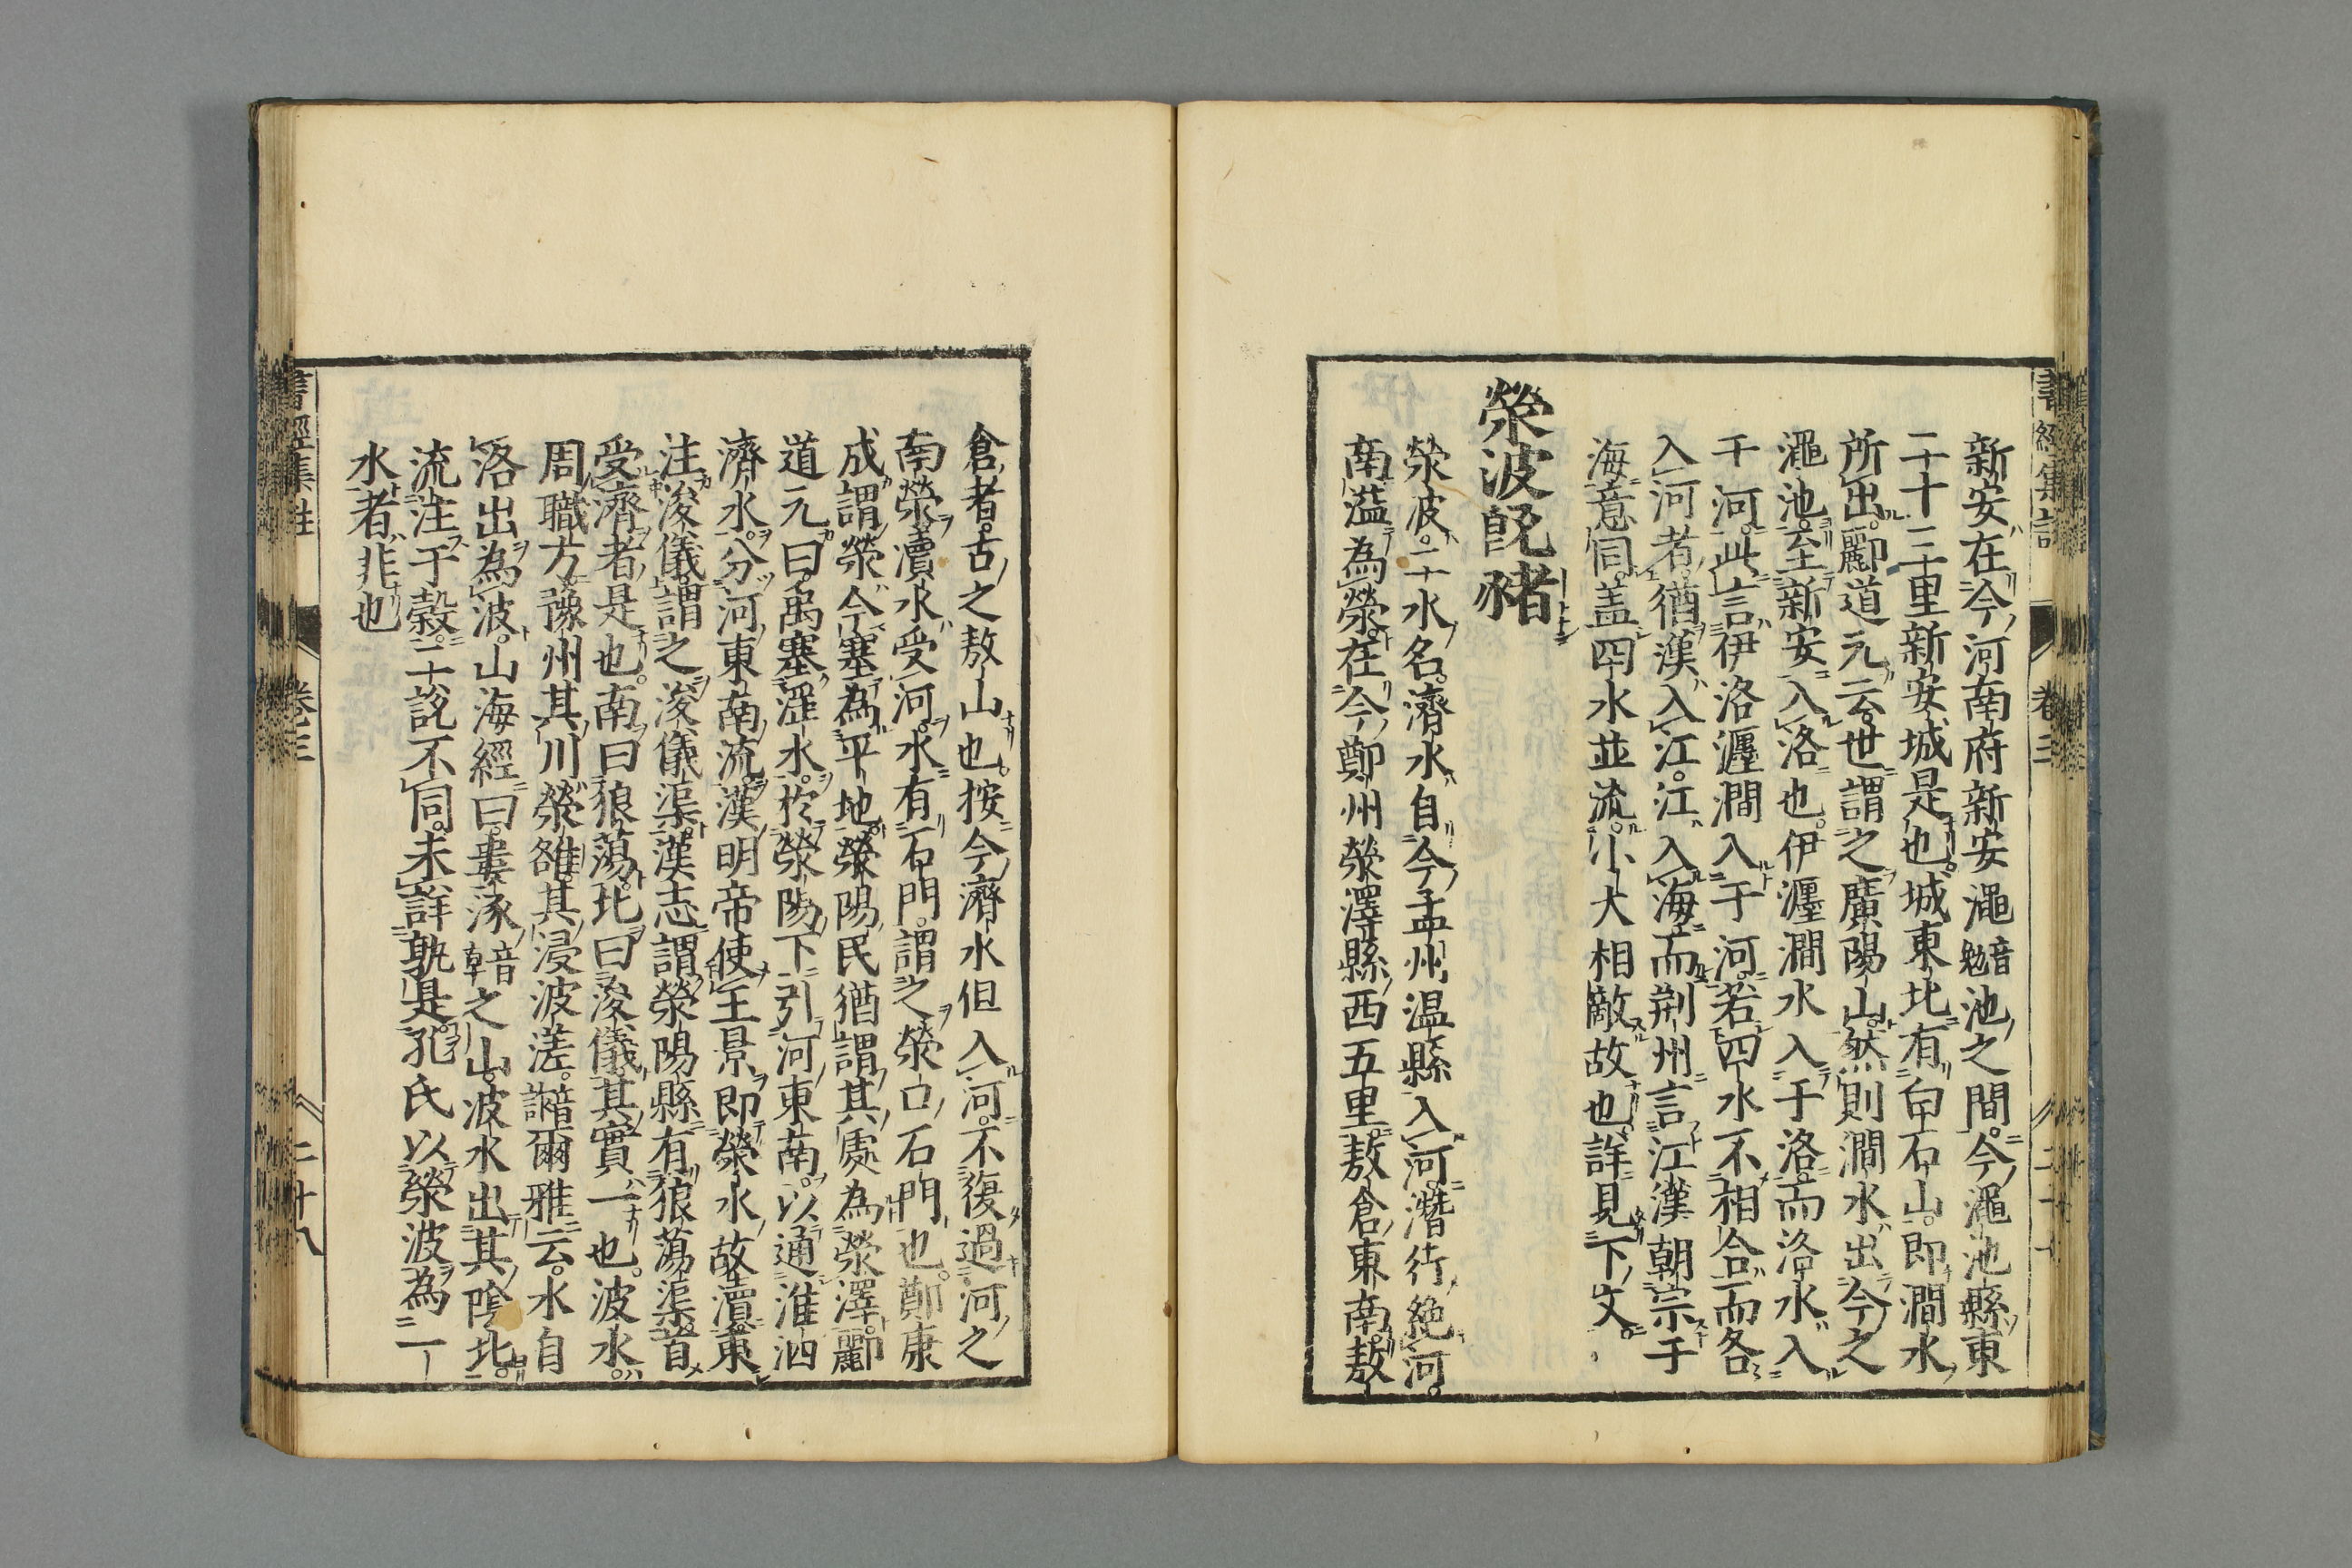 新安在今河南府新安澠音勉池之間今澠池縣東
二十三里新安城是也城東北有白石山即澗水
所出酈道元云世謂之廣陽山然則澗水出今之
澠池至新安入洛也伊瀍澗水入于洛而洛水入
于河此言伊洛瀍澗入于河若四水不相合而各
入河者猶漢入江江入海而荆州言江漢朝宗于
海意同盖四水並流小大相敵故也詳見下文
滎波既豬
滎波二水名濟水自今孟州温縣入河潛行絶河
南溢為滎在今鄭州滎澤縣西五里敖倉東南敖
倉者古之敖山也按今濟水但入河不復過河之
南滎瀆水受河水有石門謂之滎口石門也鄭康
成謂滎今塞為平地滎陽民猶謂其處為滎澤酈
道元曰禹塞滛水於滎陽下引河東南以通淮泗
濟水分河東南流漢明帝使王景即滎水故瀆東
注浚儀謂之浚儀渠漢志謂滎陽縣有狼蕩渠首
受濟者是也南曰狼蕩北曰浚儀其實一也波水
周職方豫州其川滎雒其浸波溠音詐爾雅云水自
洛出為波山海經曰婁涿音韓之山波水出其陰北
流注于穀二說不同未詳孰是孔氏以滎波為一
水者非也
書經集註
卷三
二十八